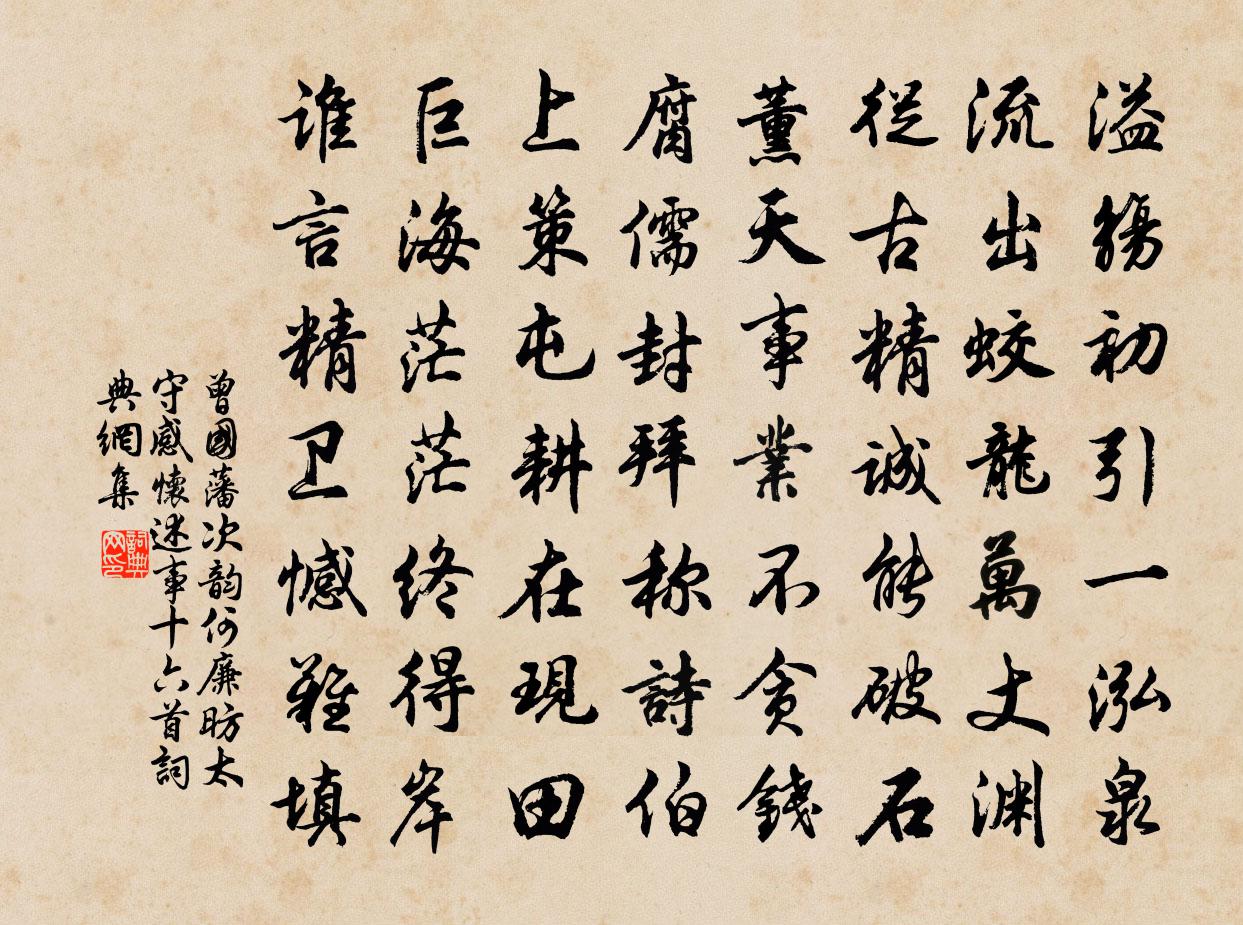 溢觴初引一泓泉
流出蛟龍萬丈渊
從古精誠能破石
薰天事業不贪錢
腐儒封拜称詩伯
上策屯耕在現田
巨海茫茫终得岸
谁言精卫憾難填
曾國藩次韵何廉昉太
守感懷述事十六首詞
典網集
詞典网印